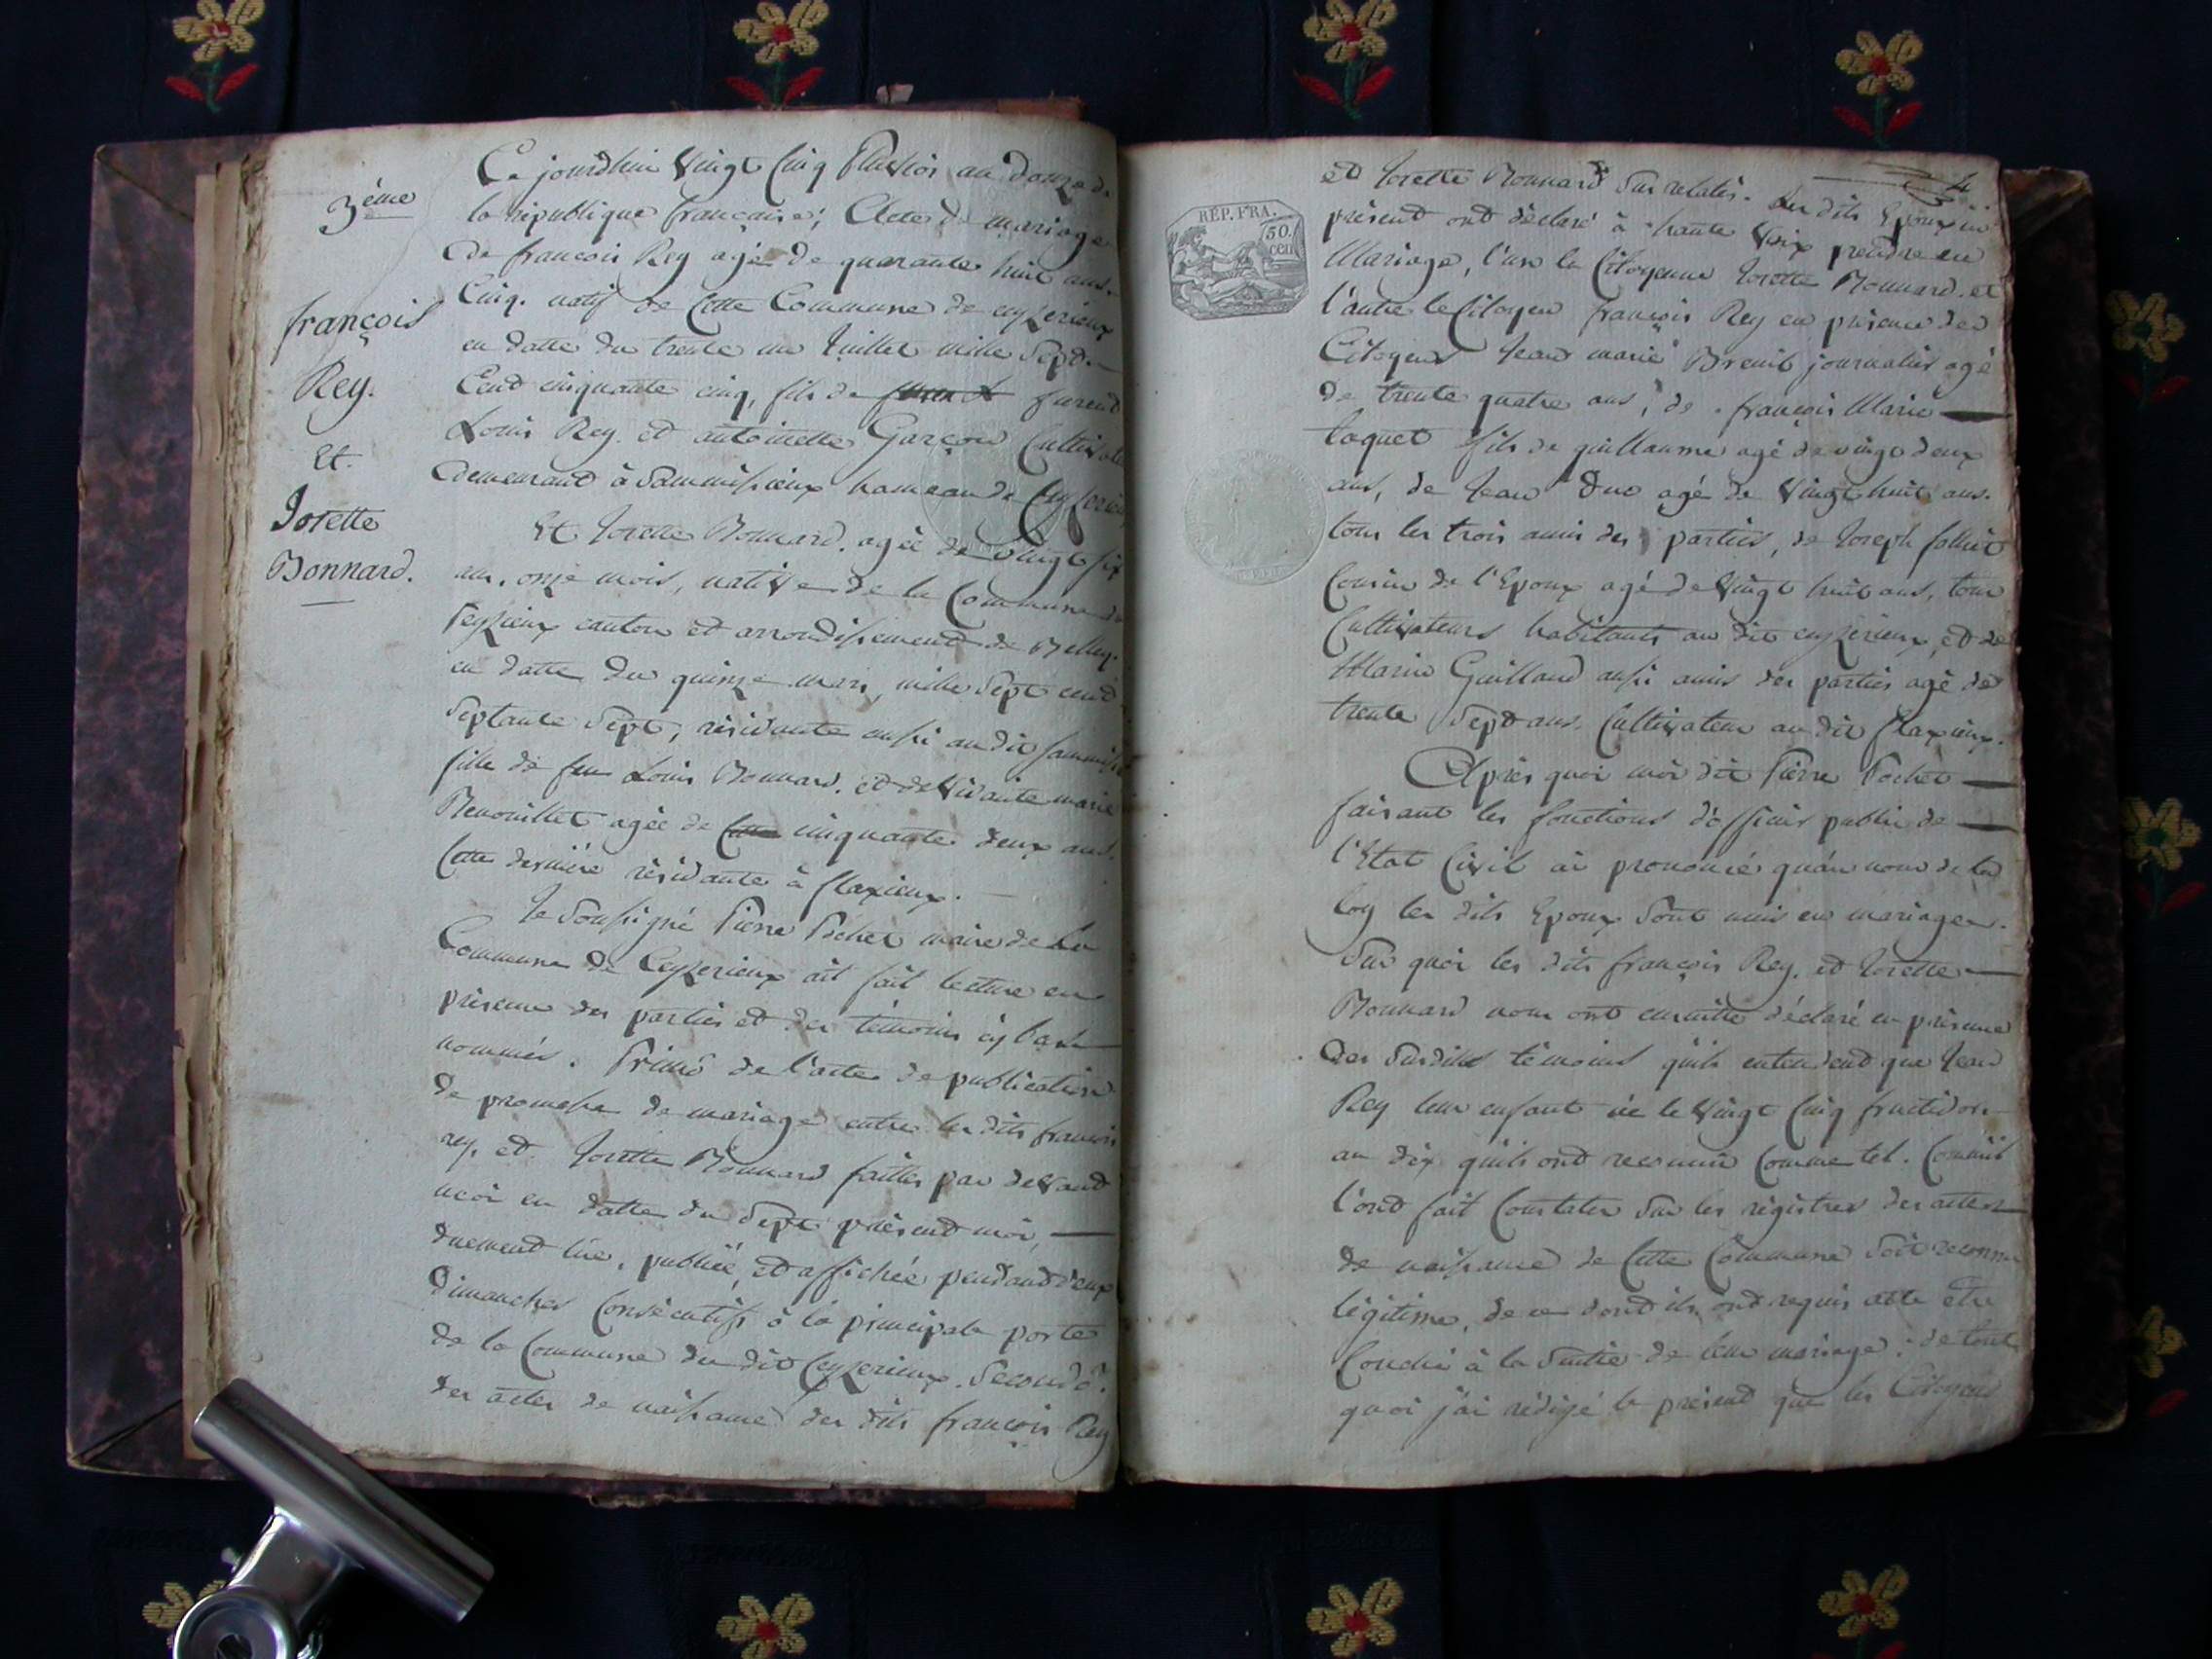 3ème
françois
Rey.
Et.
Josette
Bonnard.
Ce jourdhui Vingt Cinq Pluviôs an Donze de
la republique française; Acte de mariage
de françois Rey agé de quarante huit ans.
Cinq. natif de Cette Commune de ceyzerieux
en datte du trente un Juillet mille Sept
Cent cinquante cinq, fils de furent
Louis Rey. et antoinette Garçon Cultivate
demeurant à Sammissieux hameau de Ceyzerieu
Et Josette Bonnard. agée de Vingt six
ans, onze mois, native de la Commune de
Peyzieux canton et arrondissement de Belley.
en datte du quinze mars, mille Sept cent
Septante Sept, residante aussi au dit Sammissi
fille de feu Louis Bonnard. et de Vivante marie
Renouillet agée de cinquante deux ans.
Cette derniere résidante à flaxieux.
Je Soussigné Pierre Pochet maire de la
Commune de Ceyzerieux ait fait lecture en
présence des parties et des témoins cy bas
nommés. Primò de l'acte de publication
de promesse de mariage entre les dits françois
rey. et Josette Bonnard faittes par devant
moi en datte du Sept présent moi,
duement lüe, publiée, et affichée pendant deux
Dimanches Consécutifs à la principale porte
de la Commune du dit Ceyzerieux. Secondò.
des actes de naissance des dits françois Rey
4
RÉP. FRA.
50.
CEN
et Josette Bonnard Sus relatés. Les dits Epoux ici
présent ont déclaré à haute Voix prendre en
Mariage, l'un la Citoyenne Josette Bonnard. et
l'autre le Citoyen françois Rey en présence des
Citoyens Jean marie Breuil journalier agé
de trente quatre ans, de françois Marie
Coquet fils de guillaume agé de vingt deux
ans, de Jean Duc agé de Vingt huit ans.
tous les trois amis des parties, de Joseph
Cousin de l'Epoux agé de Vingt huit ans, tous
Cultivateurs habitants au dit ceyzerieux, et de
Marin Guilland aussi amis des parties agé de
trente Sept ans. Cultivateur au dit flaxieux.
Après quoi moi dit Pierre Pochet
faisant les fonctions d'officier public de
l'Etat Civil ai prononcé qu'au nom de la
loy les dits Epoux Sont unis en mariage.
Sur quoi les dits françois Rey. et Josette
Bonnard nous ont ensuitte déclaré en présence
des Susdits témoins qu'ils entendent que Jean
Rey leur enfant né le Vingt Cinq fructidor
an dix qu'ils ont reconnu Comme tel. Comm'il
l'ont fait Constater Sur les régistres des actes
de naissance de Cette Commune Soit reconnu
légitime, de ce dont ils ont requis acte etre
Couché à la Suitte de leur mariage; de tout
quoi j'ai rédigé le présent que les Citoyens